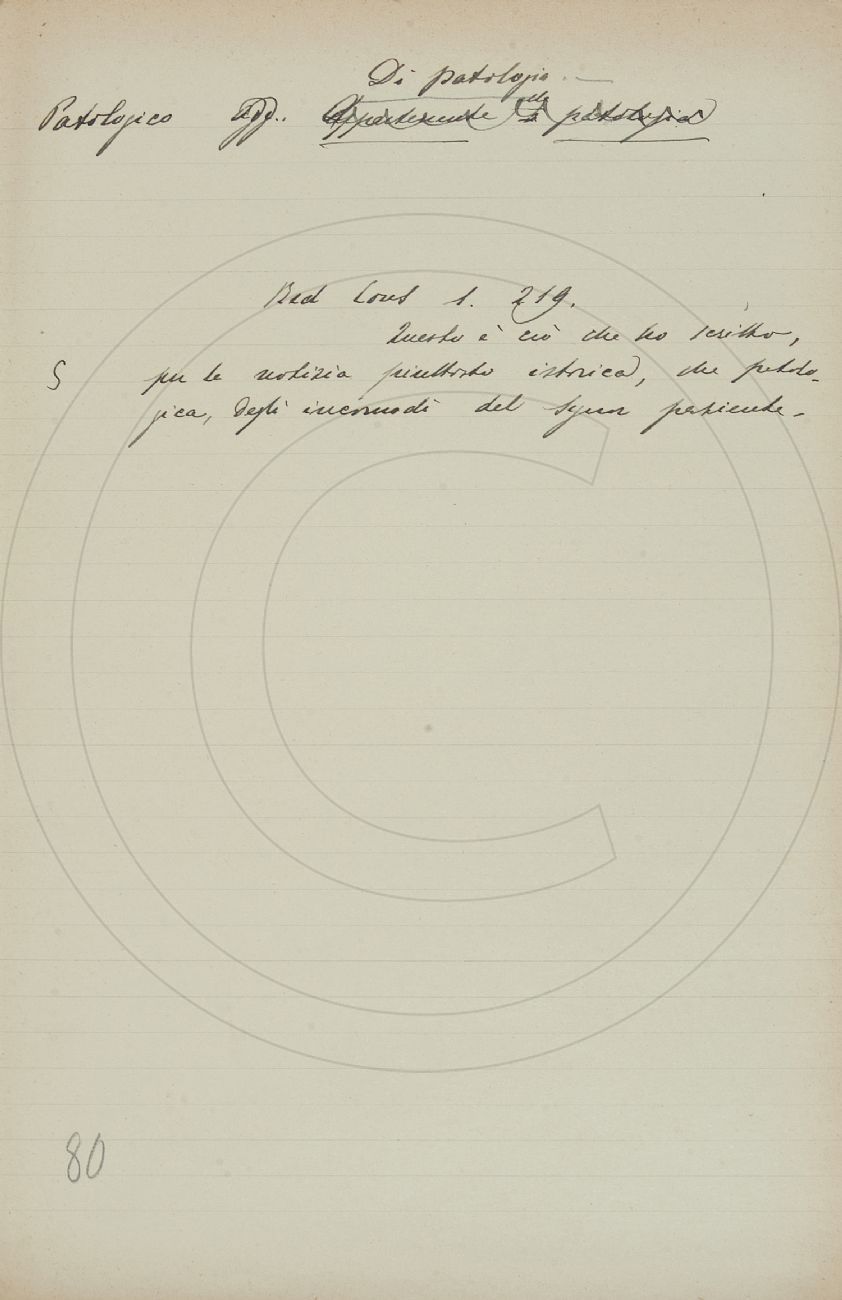 Di patologia. —
Patologico add. Appartenente alla patologia
Red Cons 1. 219.
Questo è ciò che ho scritto,
per le notizia piuttosto istorica, che patolo-
gica, degli incomodi del Signor paziente.
80